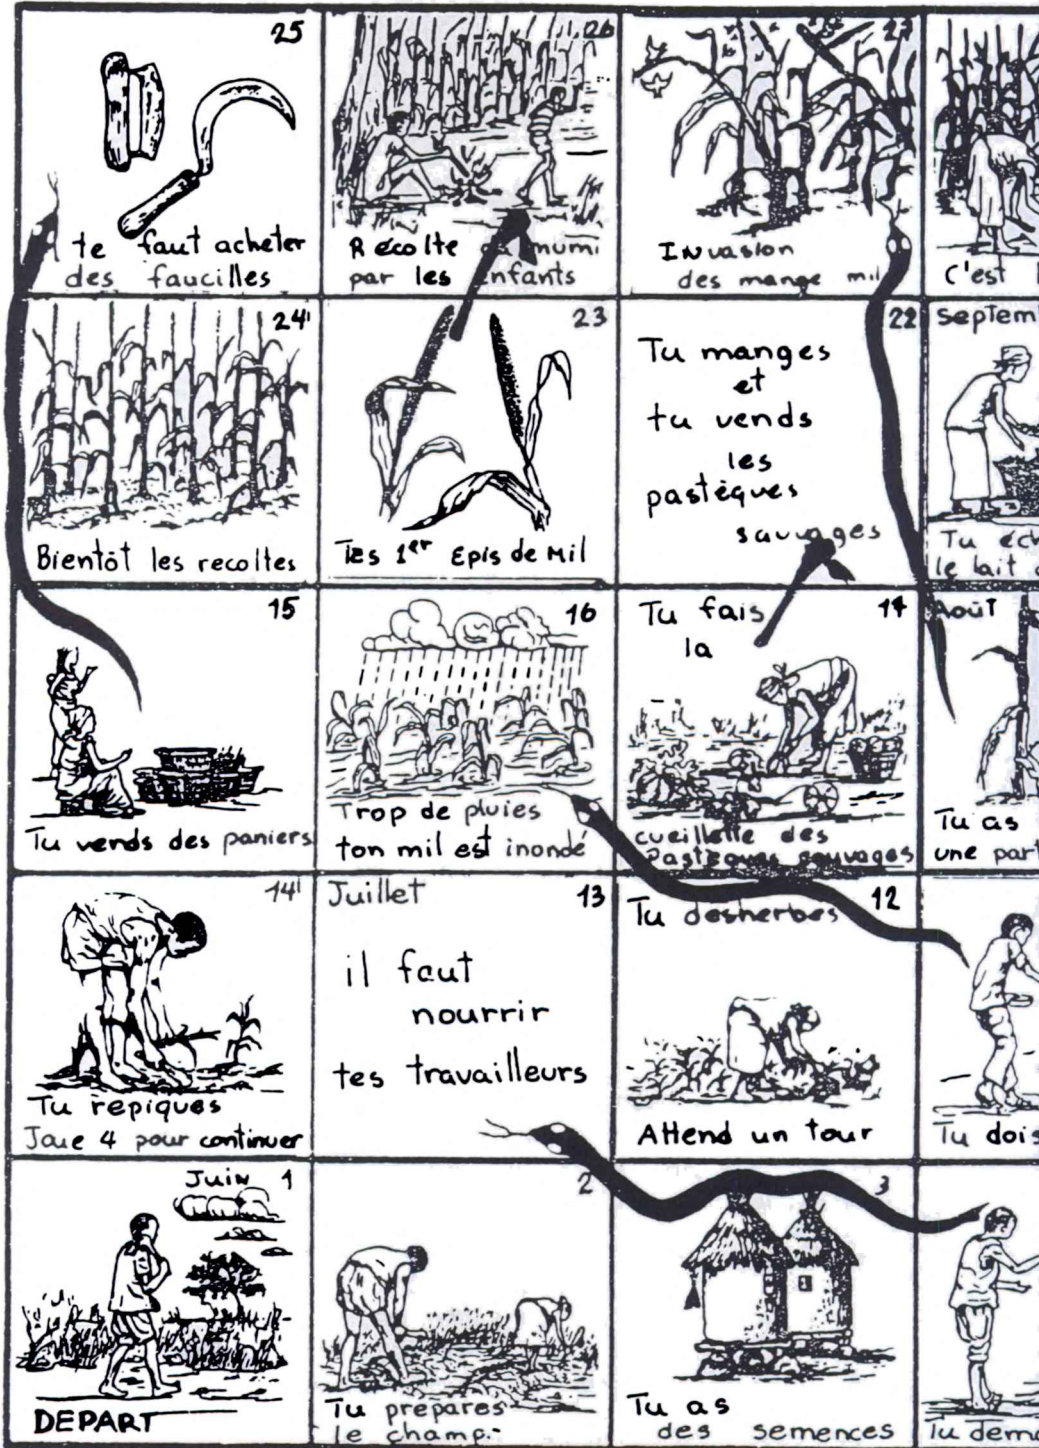 25
te faut acheter
des faucilles
26
Récolte du mumi
par les enfants
27
Invasion
des mange mil
C'est
24
Bientôt les recoltes
23
Tes 1er Epis de Mil
22
Tu manges
et
tu vends
les
pastèques
sauvages
Septem
Tu éch
le lait
15
Tu vends des paniers
16
Trop de pluies
ton mil est inondé
17
Tu fais
la
cueillette des
Pastèques sauvages
Août
Tu as
une part
14
Tu repiques
Joue 4 pour continuer
Juillet 13
il faut
nourrir
tes travailleurs
Tu desherbes 12
Attend un tour
Tu dois
Juin 1
DEPART
2
Tu prépares
le champ.
3
Tu as
des semences
Tu dema